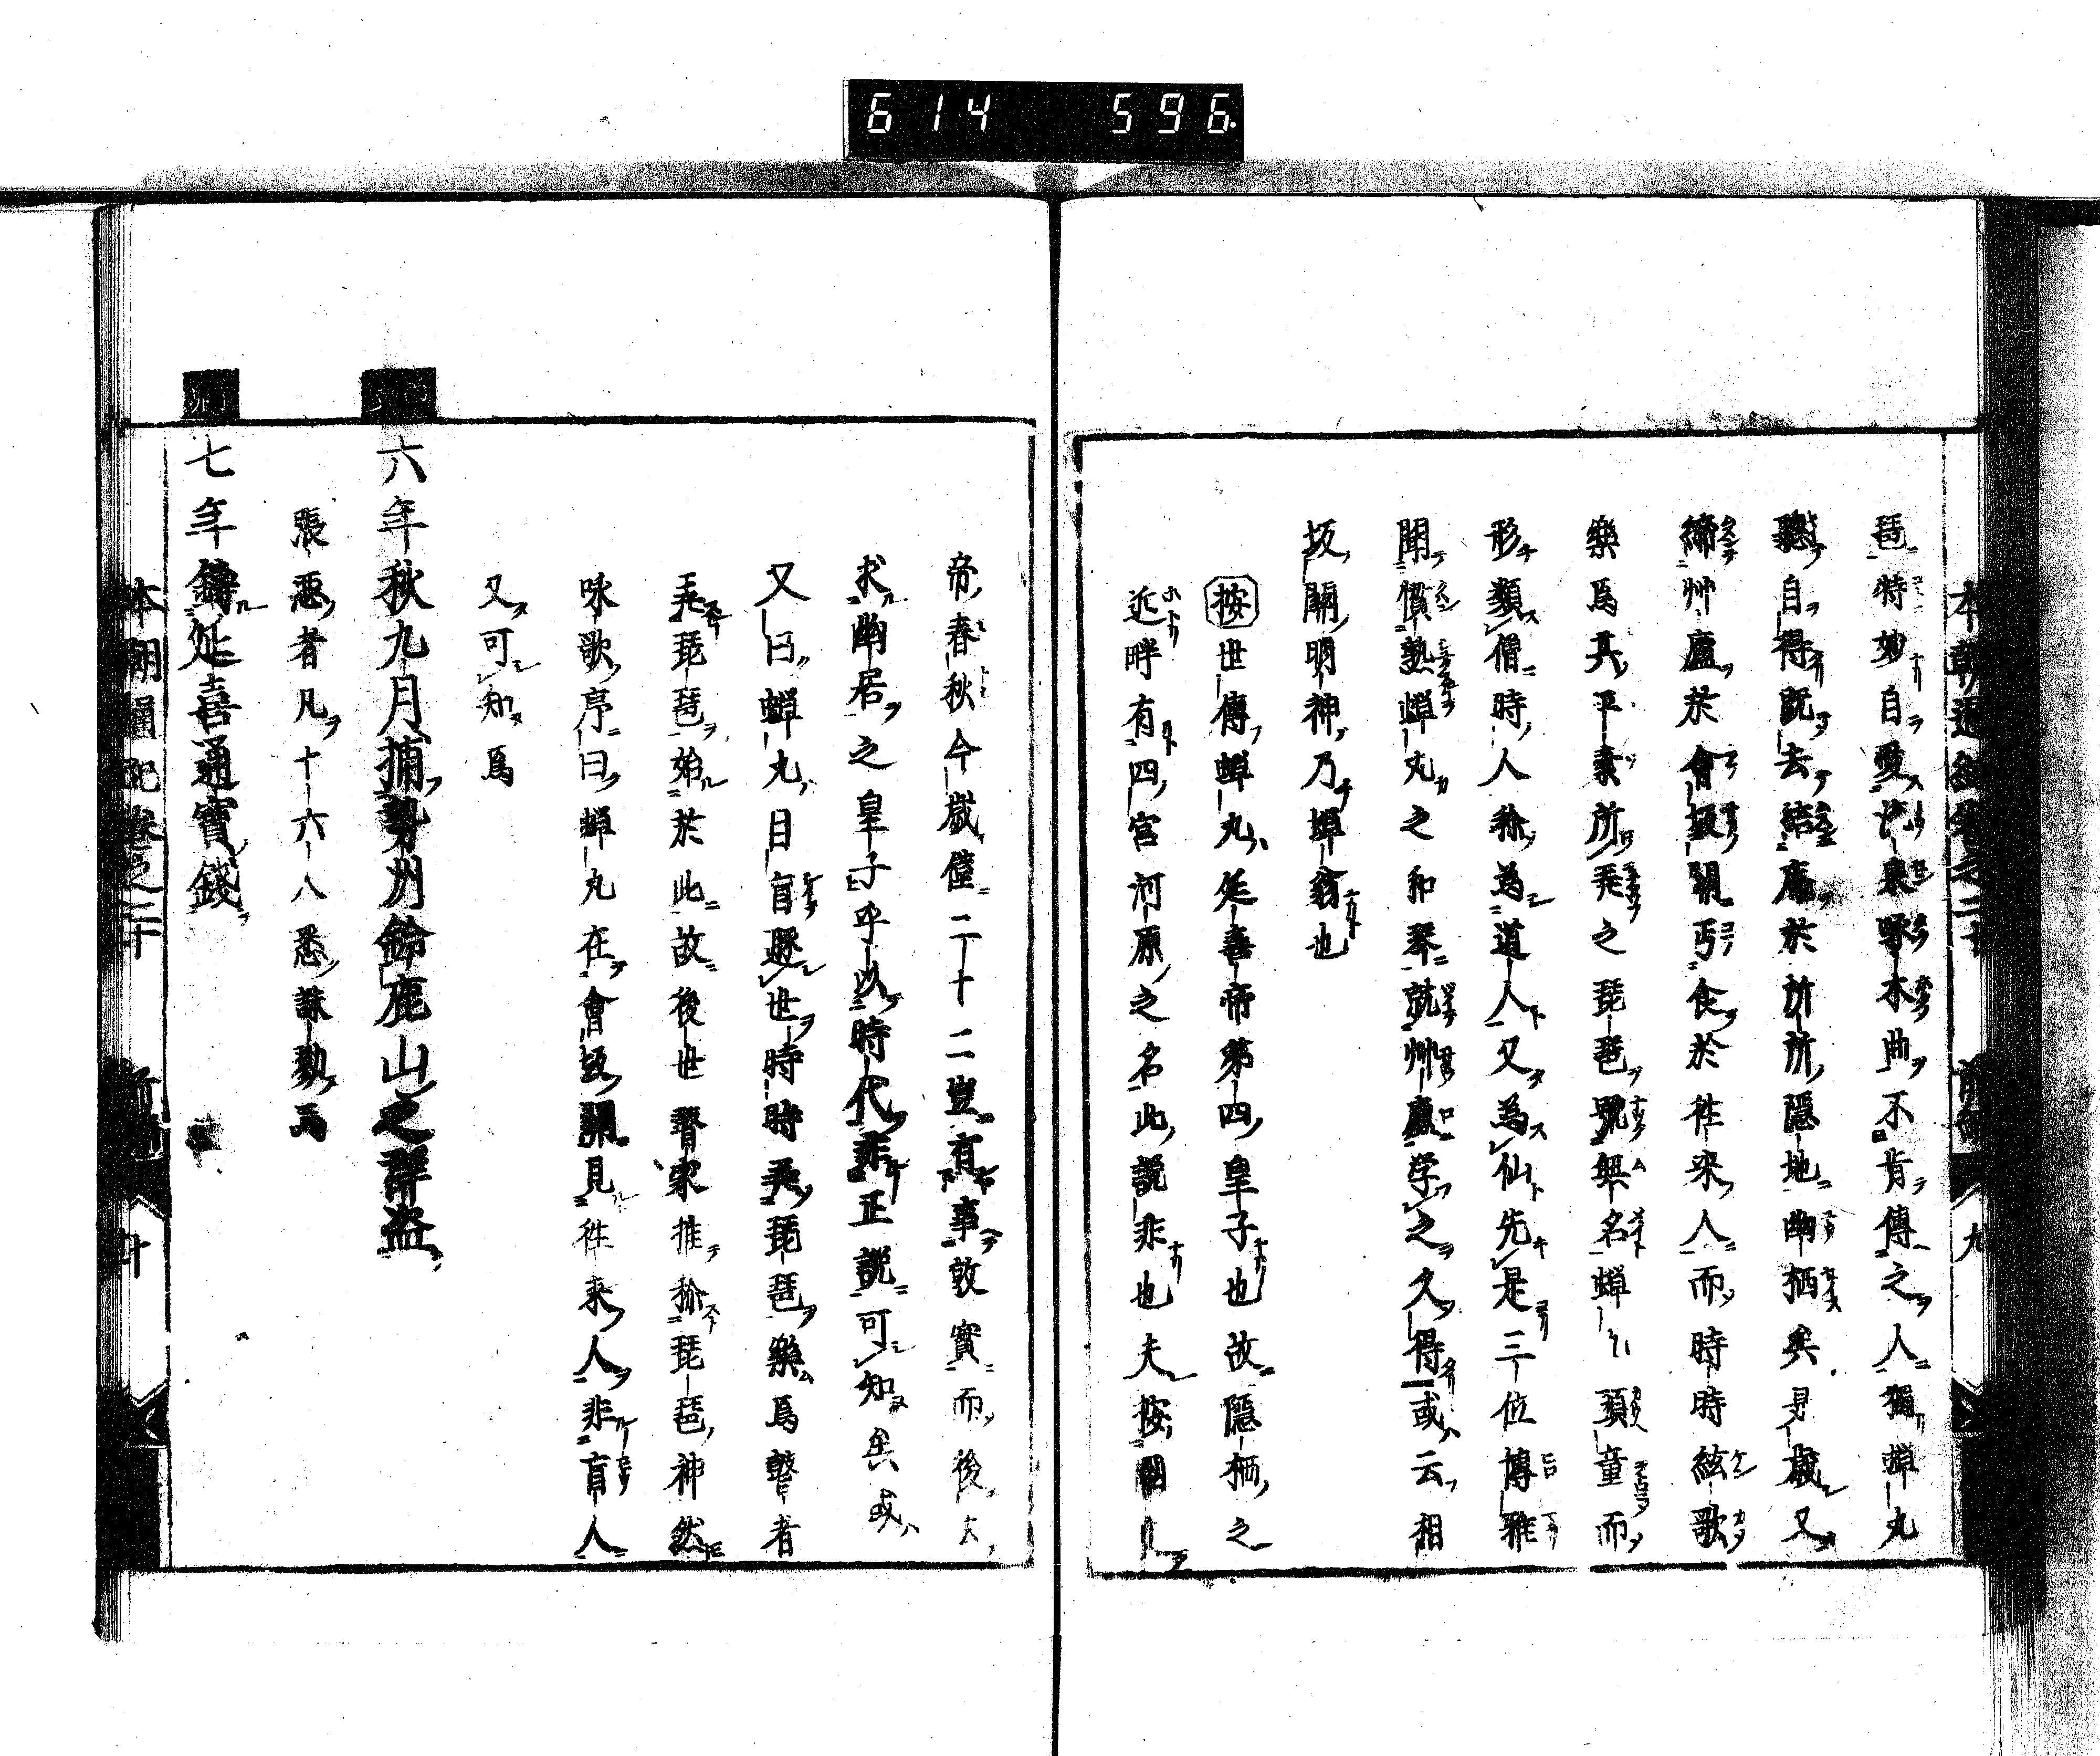 614 596.
本朝通紀卷之二十 前編 九
琶特妙自愛流泉啄木曲不肯傳之人獨蟬丸
聽自得既去結庵於所所隱地幽栖矣是歲又
締艸廬於會坂關丐食於往來人而時時絃歌
樂焉其平素所彈之琵琶號無名蟬丸頭童而
形類僧時人稱為道人又為仙先是三位博雅
聞慣熟蟬丸之和琴就艸廬学之久得或云相
坂關明神乃蟬翁也
按世傳蟬丸延喜帝第四皇子也故隱栖之
近畔有四宮河原之名此說非也夫按
帝春秋今歲僅二十二豈有事敦實而後
求幽居之皇子乎以時代非正說可知矣或
又曰蟬丸目盲遯世時時彈琵琶樂焉瞽者
彈琵琶始於此故後世瞽家推稱琵琶神然
咏歌序曰蟬丸在會坂關見往来人非盲人
又可知焉
六年秋九月捕勢州鈴鹿山之群盜
張惡者凡十六人悉誅戮焉
七年鑄延喜通寶錢
本朝通紀卷之二十 前編 十